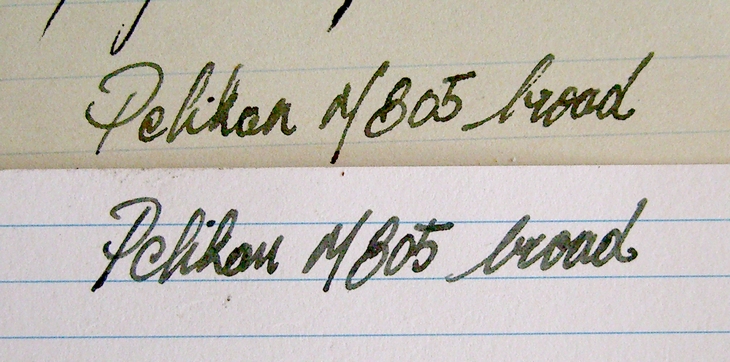 Pelikan M805 broad
Pelikan M805 broad